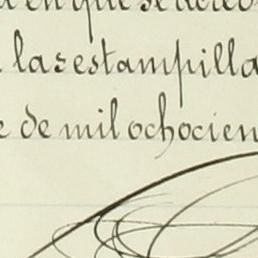 en que se
las estampilla
de mil ochocien